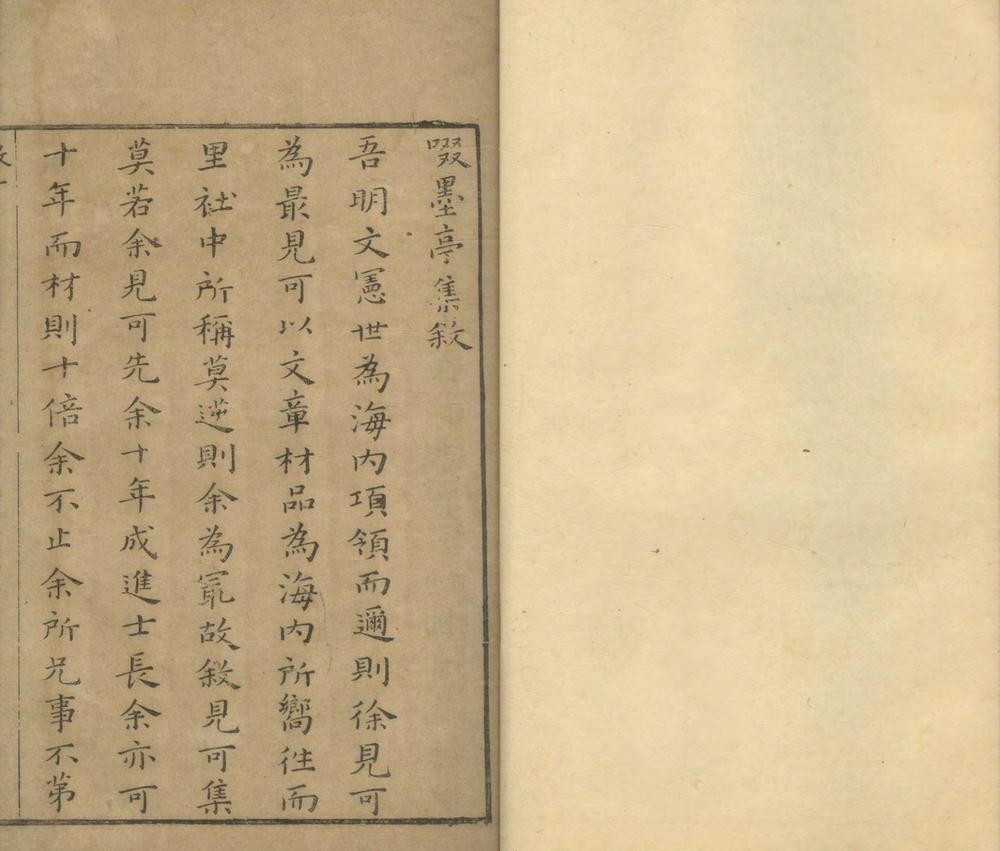 啜墨亭集敘
吾明文憲世為海內項領而邇則徐見可
為最見可以文章材品為海內所嚮徃而
里社中所稱莫逆則余為冣故敘見可集
莫若余見可先余十年成進士長余亦可
十年而材則十倍余不止余所兄事不第